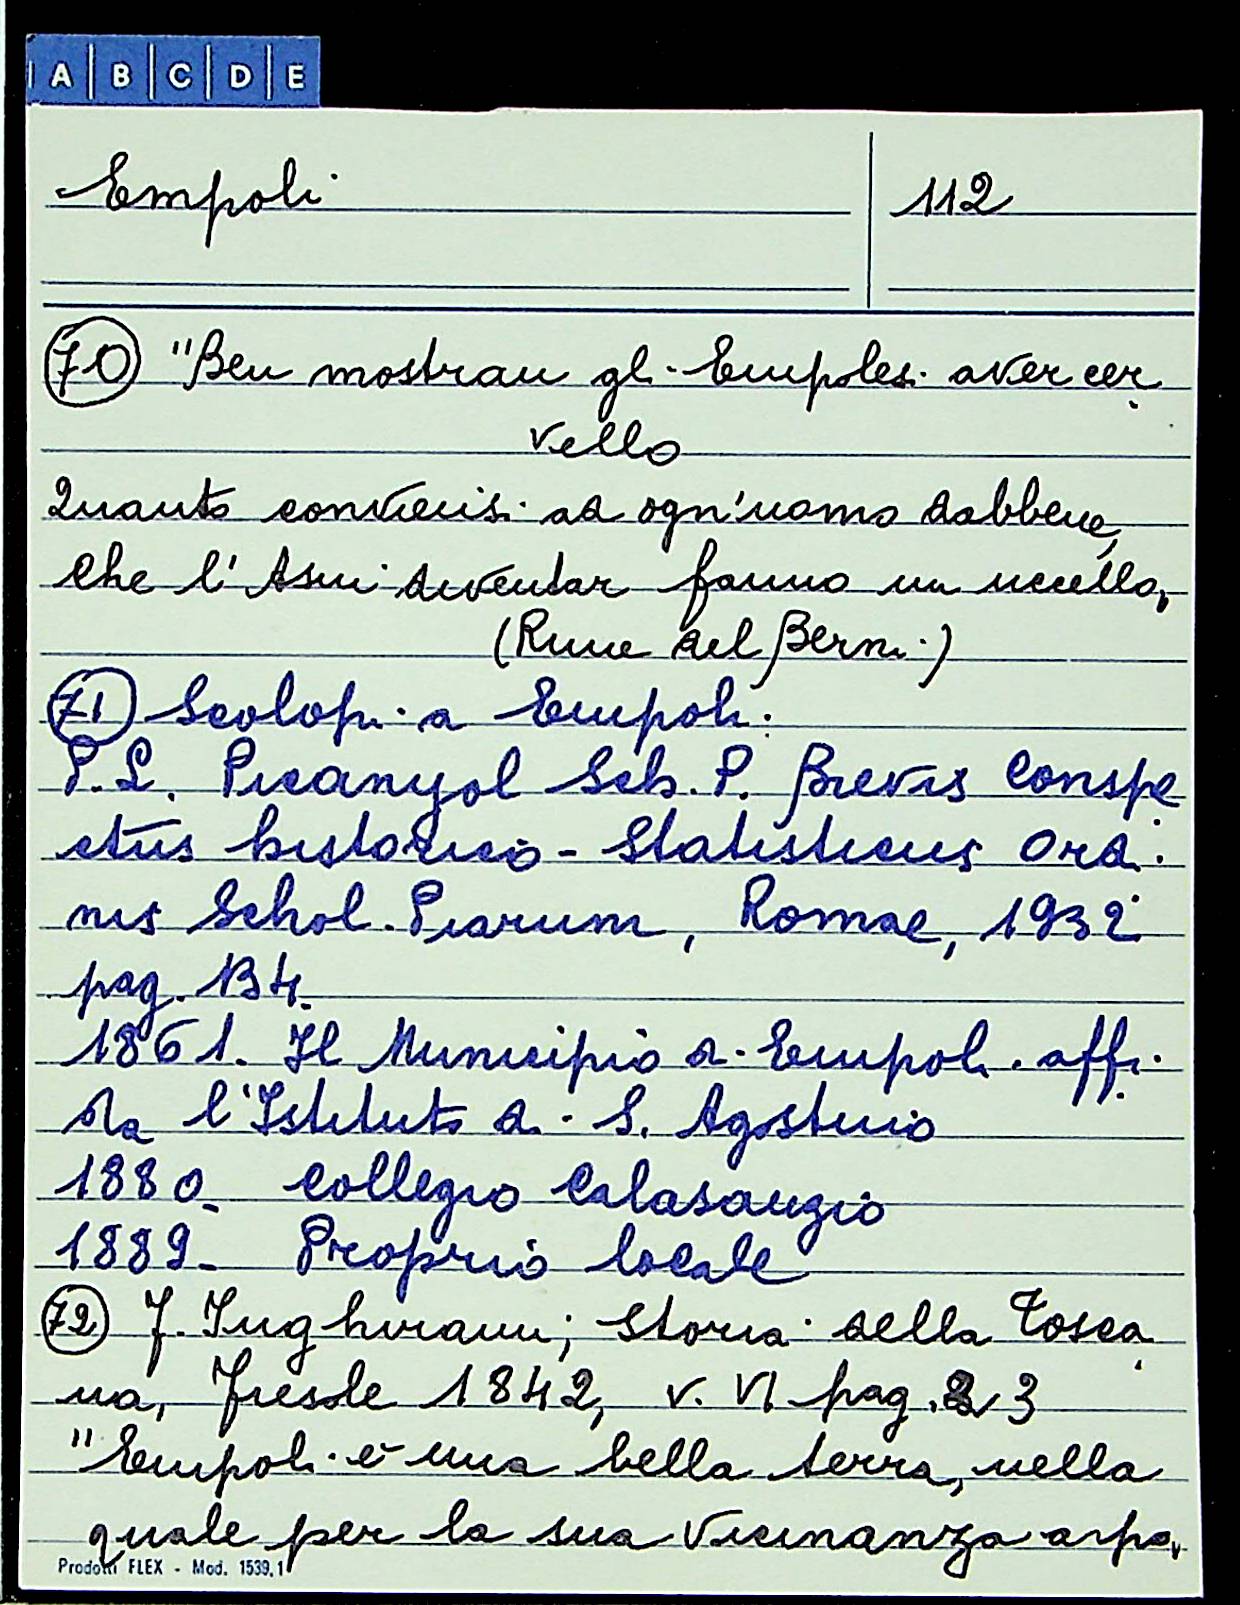 A B C D E
Empoli
112
70 "Ben mostran gli Empolesi aver cer
vello
Quanto conviensi ad ogn'uomo dabbene,
Che l'Asin diventar fanno un uccello,
(Rime del Berni)
71 Scolopi a Empoli.
P. L. Picanyol Sch. P. Brevis Conspe
ctus historico - Statisticus Ordi
nis Schol. Piarum, Romae, 1932
pag. 134.
1861. Il Municipio di Empoli affi
da l'Istituto di S. Agostino
1880 - Collegio Calasanzio
1889 - Proprio locale
72 F. Inghirami; Storia della Tosca
na, Fiesole 1842, v. VI pag. 3
"Empoli è una bella terra, nella
quale per la sua vicinanza
Prodotti FLEX - Mod. 1539.1